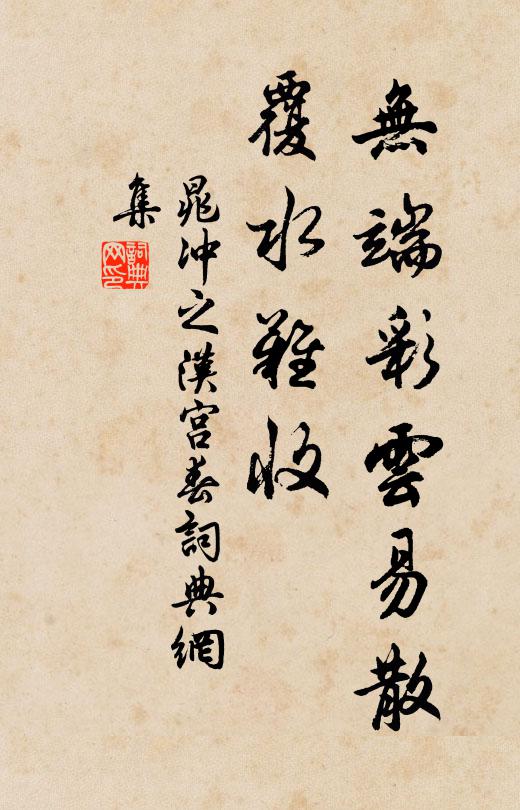 無端彩雲易散
覆水難收
晁冲之漢宮春詞典網
集
詞典
网印